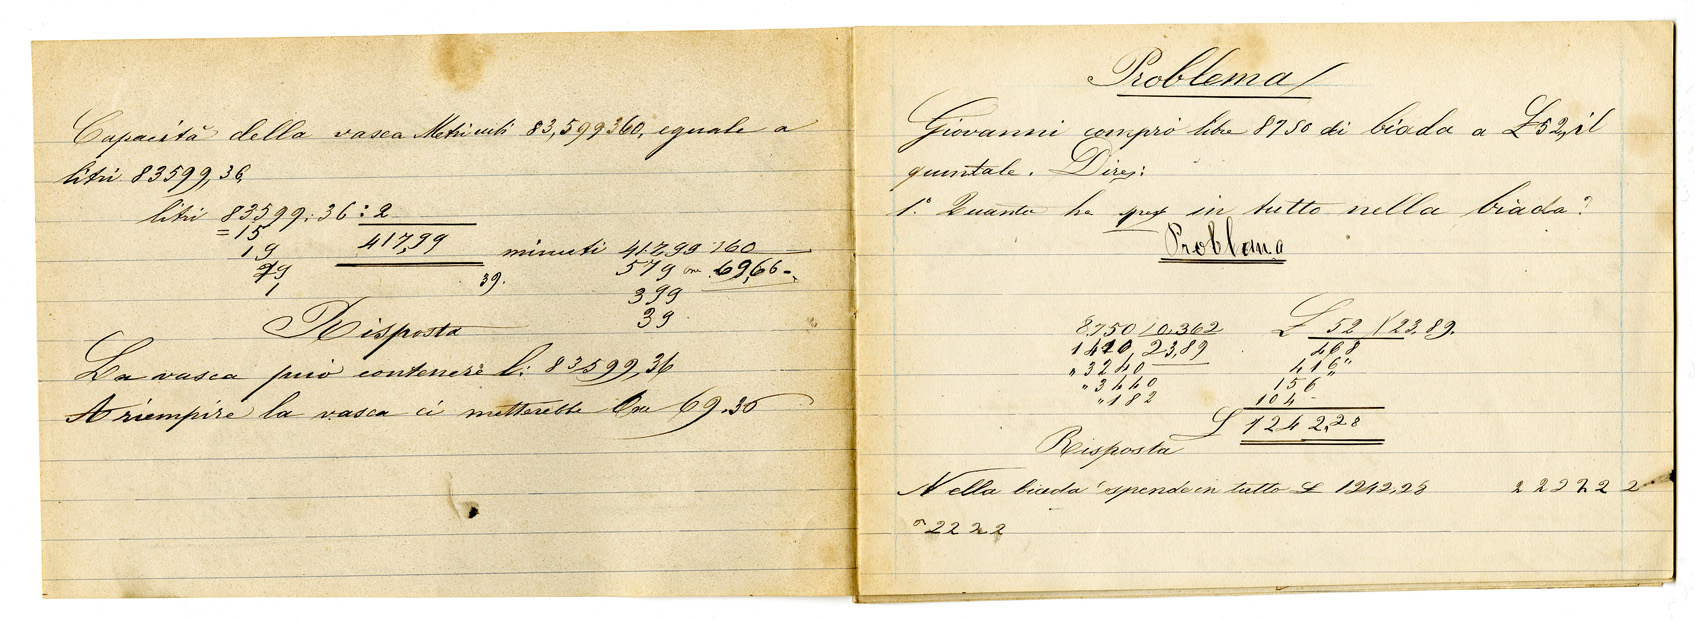 Capacità della vasca Metricubi 83,599360, eguale a
litri 83599,36
litri 83599,36 : 2
= 15 417,99
19 minuti 417,99 : 60
79 39. 579 ore 69,66 -
1 399
39
Risposta
La vasca può contenere l: 83599,36
A riempire la vasca ci metterebbe Ore 69.36
Problema
Giovanni comprò libre 8750 di biada a £ 52, il
quintale. Diresi:
1.° Quanto ha spes in tutto nella biada?
Problema
8,750 / 0,362 £ 52 X 23,89.
1410, 23,89 468
" 3240 416"
" 3440 156
" 182 104 -
£ 1242,28
Risposta
Nella biada spende in tutto £ 1242,28 2 2 2 2 2 2
2 2 2 2